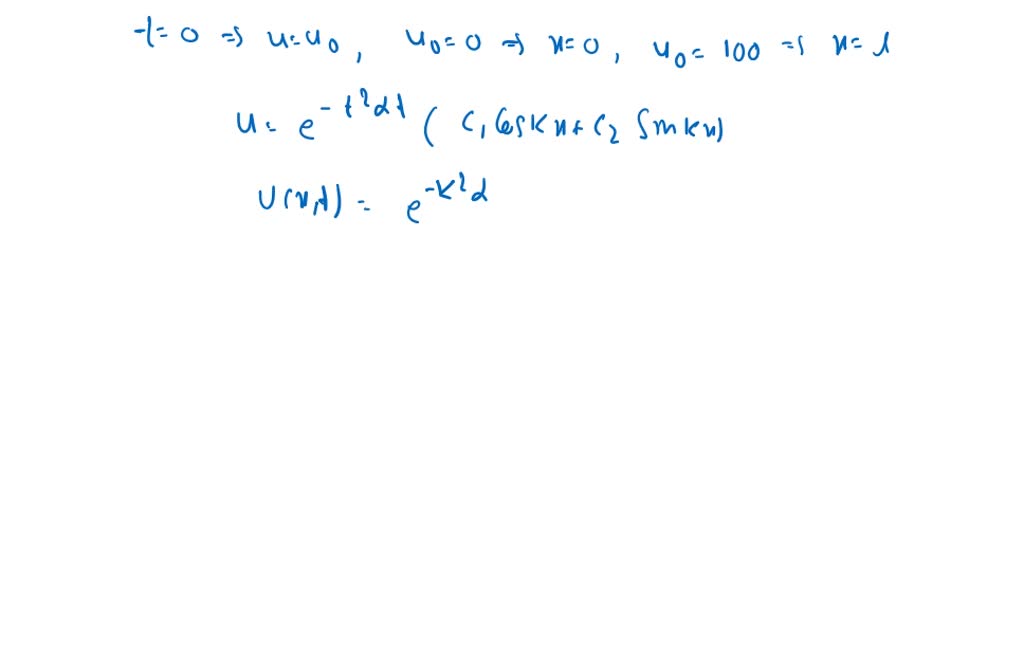 t=0 ⇒ u=u₀, u₀=0 ⇒ x=0, u₀=100 ⇒ x=l
u = e^{-t²αt} (c₁ Cos kx + c₂ Sin kx)
U(x,t) = e^{-k²α}